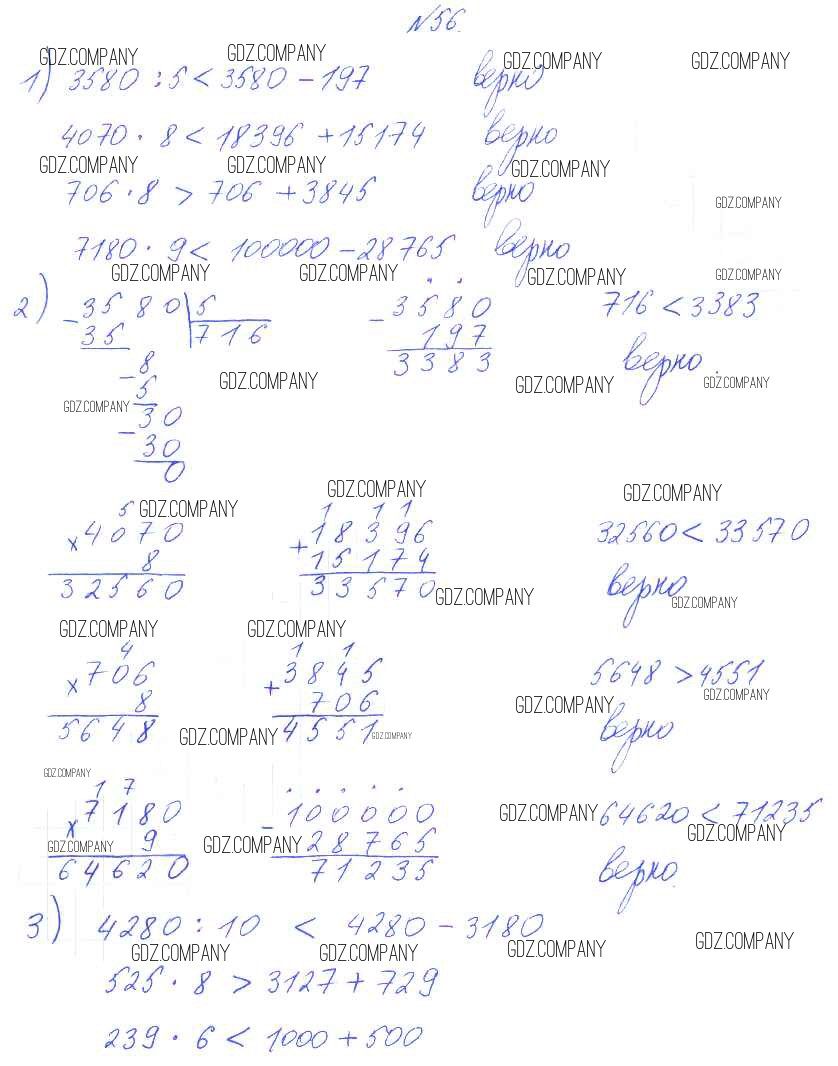 №56.
GDZ.COMPANY GDZ.COMPANY GDZ.COMPANY GDZ.COMPANY
1) 3580 : 5 < 3580 – 197 верно
4070 · 8 < 18396 + 15174 верно
GDZ.COMPANY GDZ.COMPANY GDZ.COMPANY
706 · 8 > 706 + 3845 верно
GDZ.COMPANY
7180 · 9 < 100000 – 28765 верно
GDZ.COMPANY GDZ.COMPANY GDZ.COMPANY GDZ.COMPANY
2) – 3580 | 5 – 3580 716 < 3383
35 716 197
8 3383 верно.
– 5 GDZ.COMPANY GDZ.COMPANY GDZ.COMPANY
GDZ.COMPANY
– 30
30
0
GDZ.COMPANY GDZ.COMPANY
5 GDZ.COMPANY 1 1 1
x 4070 + 18396 32560 < 33570
8 15174
32560 33570 верно
GDZ.COMPANY GDZ.COMPANY
GDZ.COMPANY GDZ.COMPANY
4 1 1
x 706 + 3845 5648 > 4551
8 706 GDZ.COMPANY GDZ.COMPANY
5648 GDZ.COMPANY 4551 GDZ.COMPANY верно
GDZ.COMPANY
1 7 . . . . .
x 7180 – 100000 GDZ.COMPANY 64620 < 71235
GDZ.COMPANY 9 GDZ.COMPANY 28765 GDZ.COMPANY
64620 71235 верно.
3) 4280 : 10 < 4280 – 3180
GDZ.COMPANY GDZ.COMPANY GDZ.COMPANY GDZ.COMPANY
525 · 8 > 3127 + 729
239 · 6 < 1000 + 500